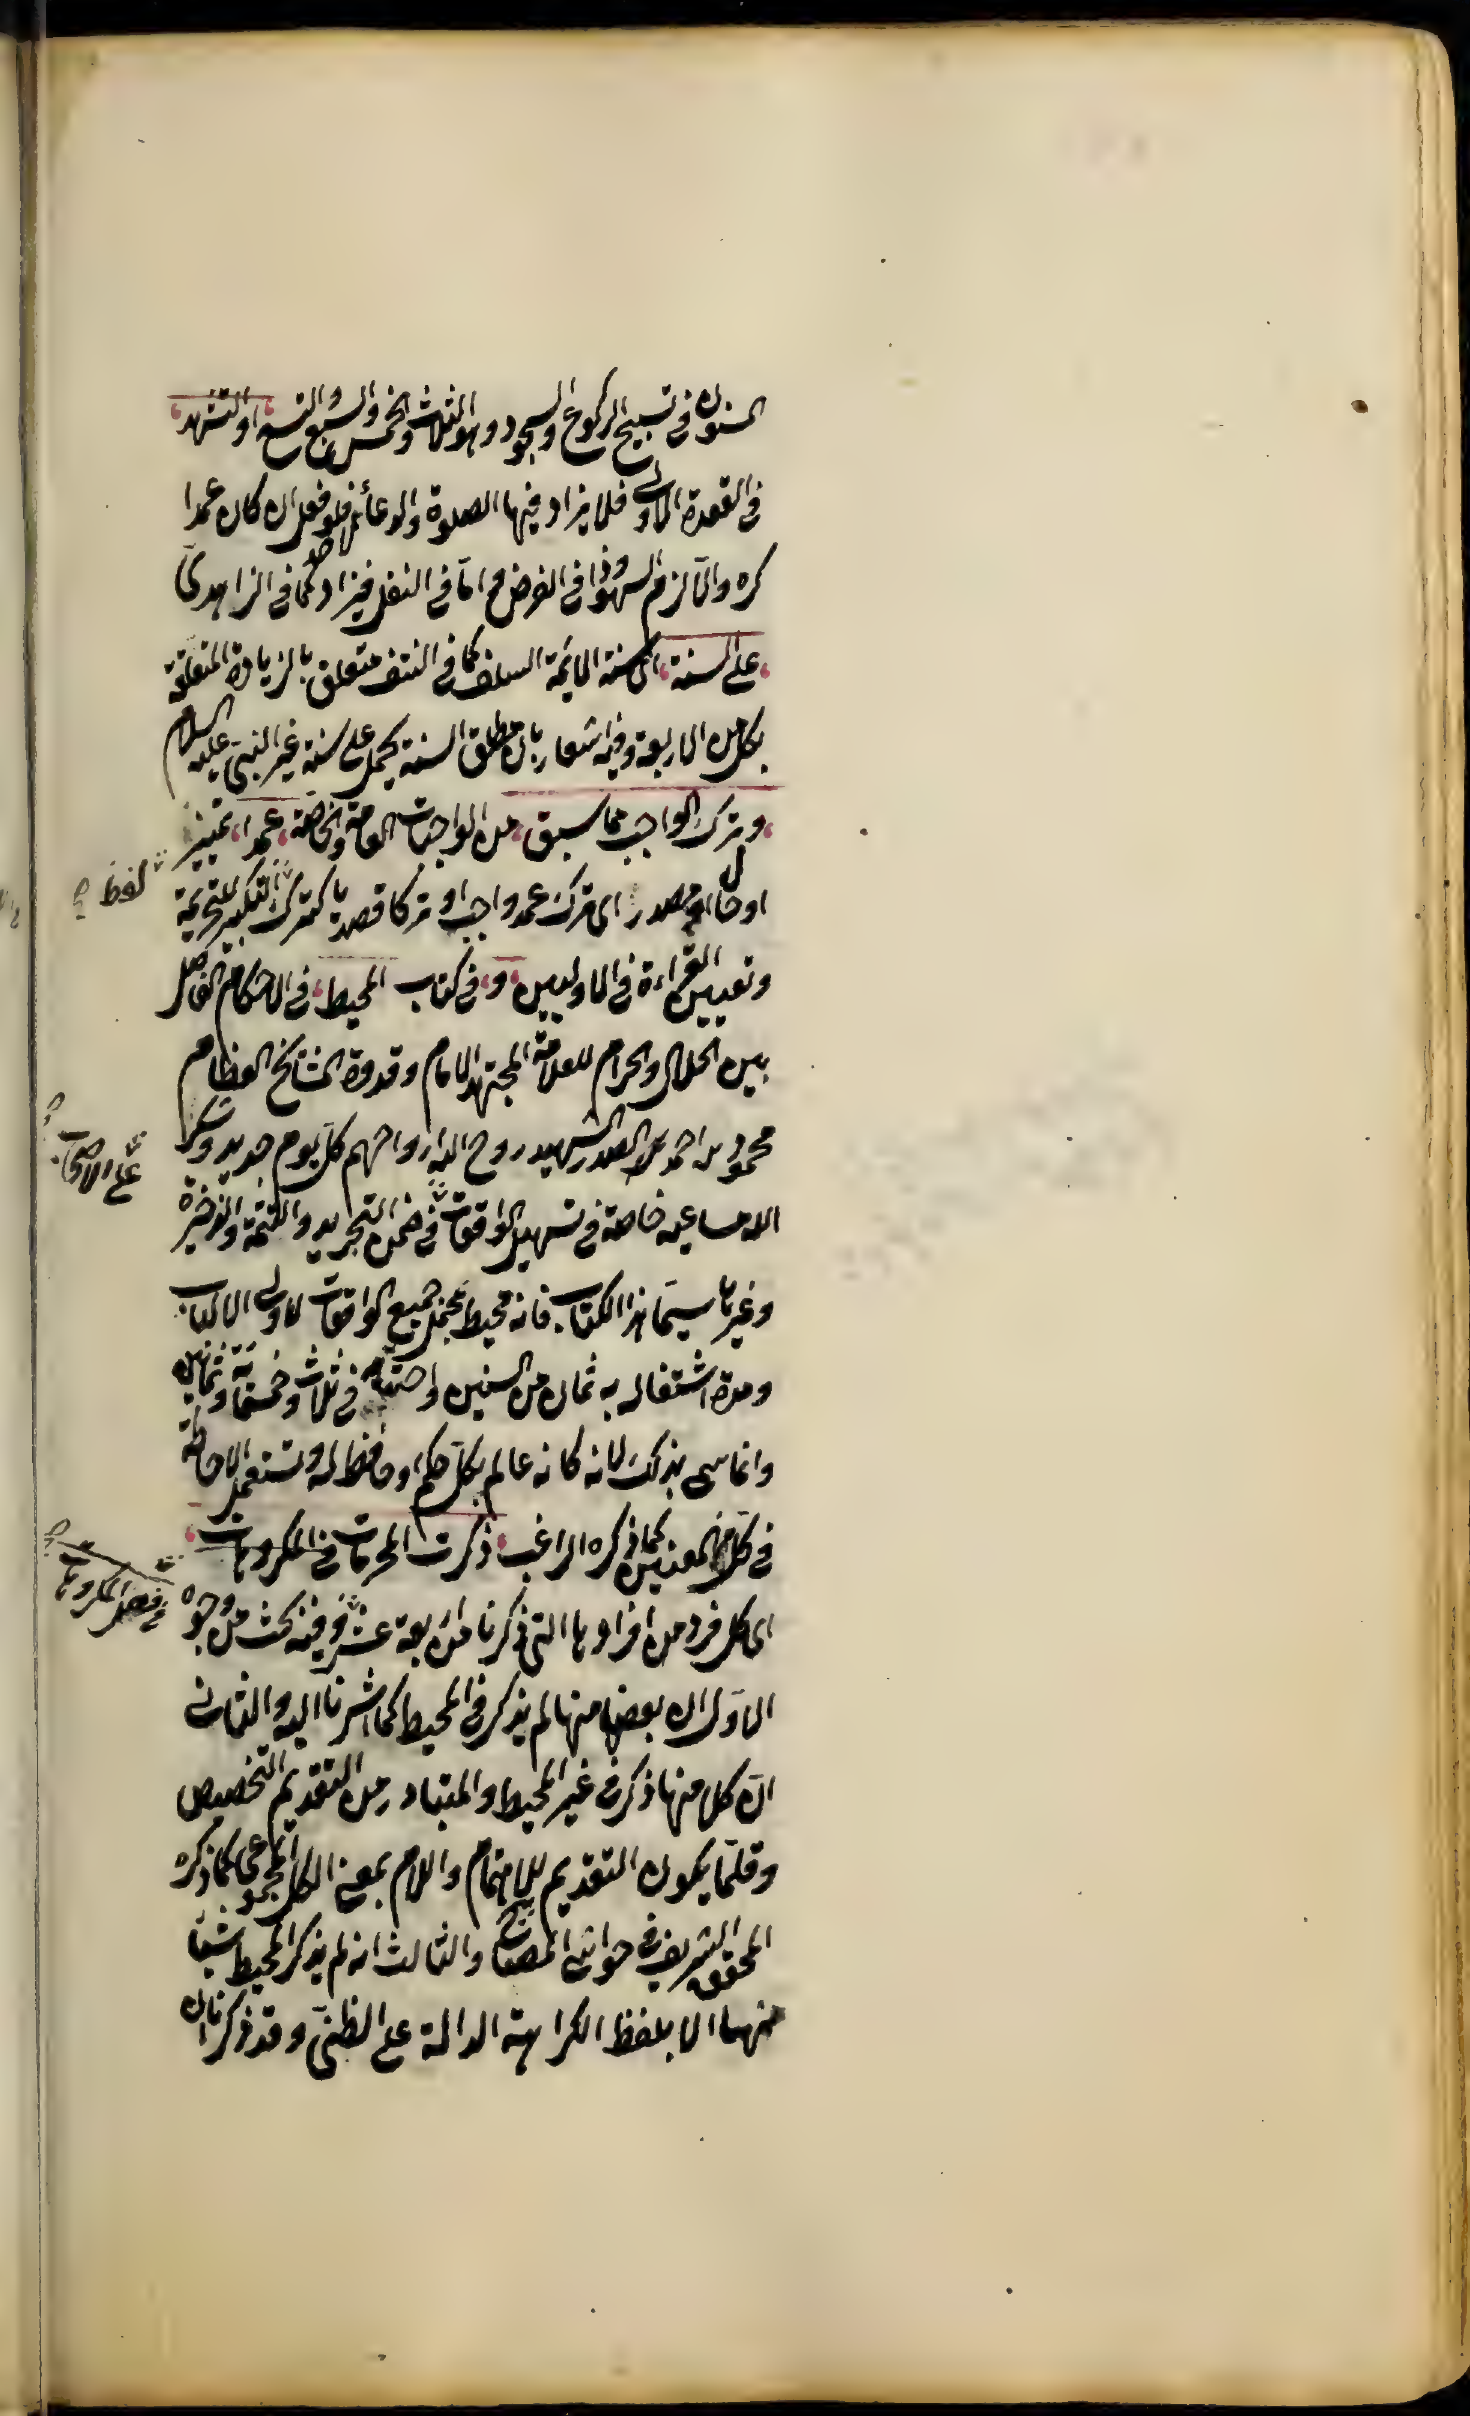 المسنون في تسبيح الركوع والسجود وهو الثلاث والخمس والسبع والتسع او التشهد
في القعدة الاولى فلا يزاد فيها الصلوة والدعاء فلو فعل ان كان عمدا
كره والا لزم السهو وذا في الفرض واما في النفل فيزاد كما في الزاهدي
على السنة اى سنة الائمة السلف كما في النتف متعلق بالزيادة المتعلقة
بكل من الاربعة وفيه اشعار بان مطلق السنة يحمل على سنة غير النبي عليه السلام
وترك الواجب مما سبق من الواجبات العامة والخاصة عمدا تمييز
او حال او مصدر اى ترك عمد واجب او تركا قصديا كترك لفظ التكبير للتحريمة
وتعيين القراءة في الاوليين و في كتاب المحيط في الاحكام الفاصل
بين الحلال والحرام للعلامة المجتهد الامام وقدوة المشايخ العظام
محمود بن احمد بن الصدر الشهيد روح الله ارواحهم كل يوم جديد وشكر
الله مساعيه خاصة في تسهيل الواقعات على الاصحاب في ضمن التجريد والتتمة والذخيرة
وغيرها سيما هذا الكتاب فانه محيط بمجمل جميع الواقعات لاولى الالباب
ومدة اشتغاله به ثمان من السنين واختتامه في ثلاث وخمسمائة وثمانين
وانما سمى بذلك لانه كانه عالم بكل حكم او حافظ له وتستعمل الاحاطة
في كل من المعنيين كما ذكره الراغب ذكرت المحرمات في المكروهات
اى كل فرد من افرادها التي ذكرنا من اربعة عشر في فصل المكروهات وفيه بحث من وجوه
الاول ان بعضها منها لم يذكر في المحيط كما اشرنا اليه والثاني
ان كل منها ذكر في غير المحيط والمتبادر من التقديم التخصيص
وقلما يكون التقديم للاهتمام واللام بمعنى الكل المجموعى كما ذكره
المحقق الشريف في حواشى المصباح والثالث انه لم يذكر المحيط شيئا
منها الا بلفظ الكراهة الدالة على الظني وقد ذكرنا ان